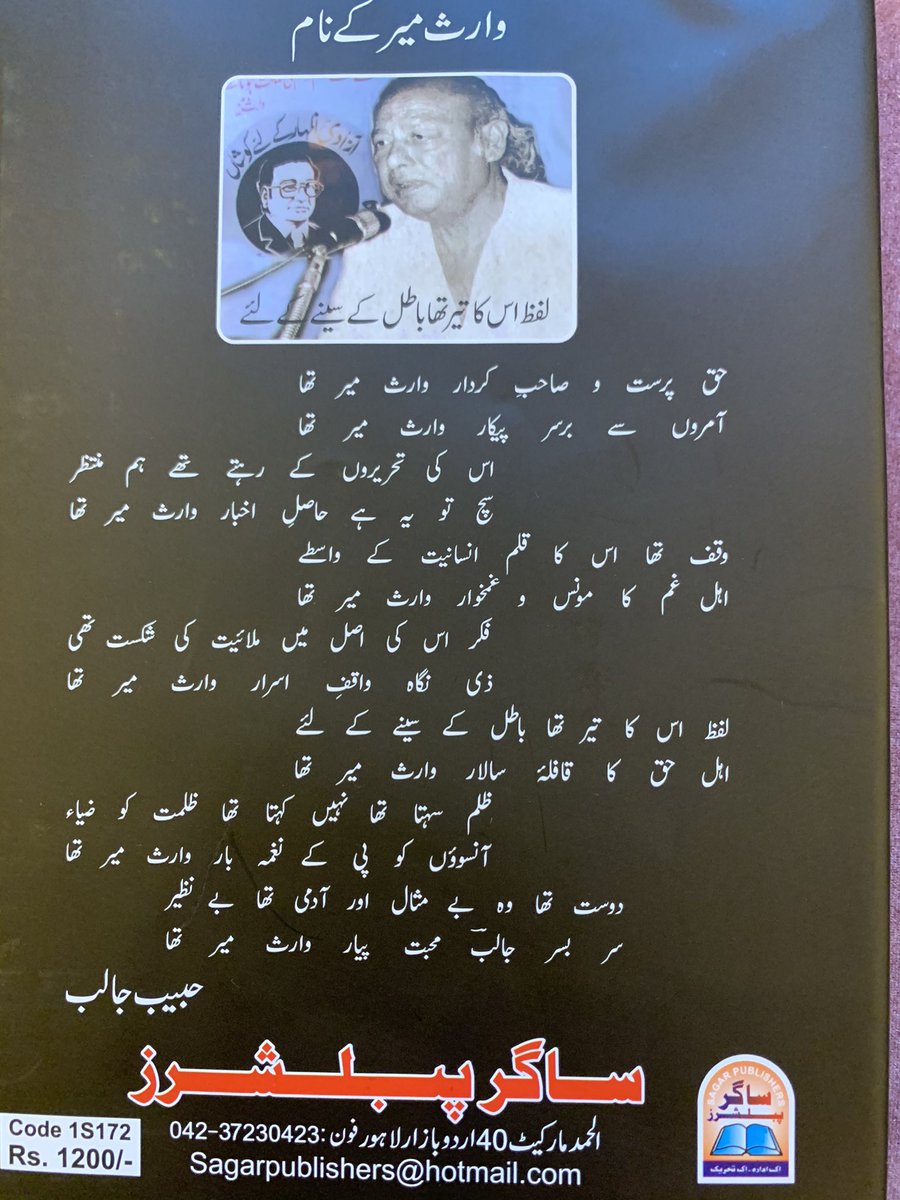 وارث میر کے نام
آزادیٔ اظہار کے لئے کوشاں
لفظ اس کا تیر تھا باطل کے سینے کے لئے
حق پرست و صاحب کردار وارث میر تھا
آمروں سے برسر پیکار وارث میر تھا
اس کی تحریروں کے رہتے تھے ہم منتظر
سچ تو یہ ہے حاصلِ اخبار وارث میر تھا
وقف تھا اس کا قلم انسانیت کے واسطے
اہل غم کا مونس و غمخوار وارث میر تھا
فکر اس کی اصل میں ملائیت کی شکست تھی
ذی نگاہ واقفِ اسرار وارث میر تھا
لفظ اس کا تیر تھا باطل کے سینے کے لئے
اہل حق کا قافلۂ سالار وارث میر تھا
ظلم سہتا تھا نہیں کہتا تھا ظلمت کو ضیاء
آنسوؤں کو پی کے نغمہ بار وارث میر تھا
دوست تھا وہ بے مثال اور آدمی تھا بے نظیر
سر بسر جالبؔ محبت پیار وارث میر تھا
حبیب جالب
ساگر پبلشرز
الحمد مارکیٹ 40 اردو بازار لاہور فون: 042-37230423
Sagarpublishers@hotmail.com
Code 1S172
Rs. 1200/-
SAGAR PUBLISHERS
ساگر
پبلشرز
اک ادارہ - اک تحریک